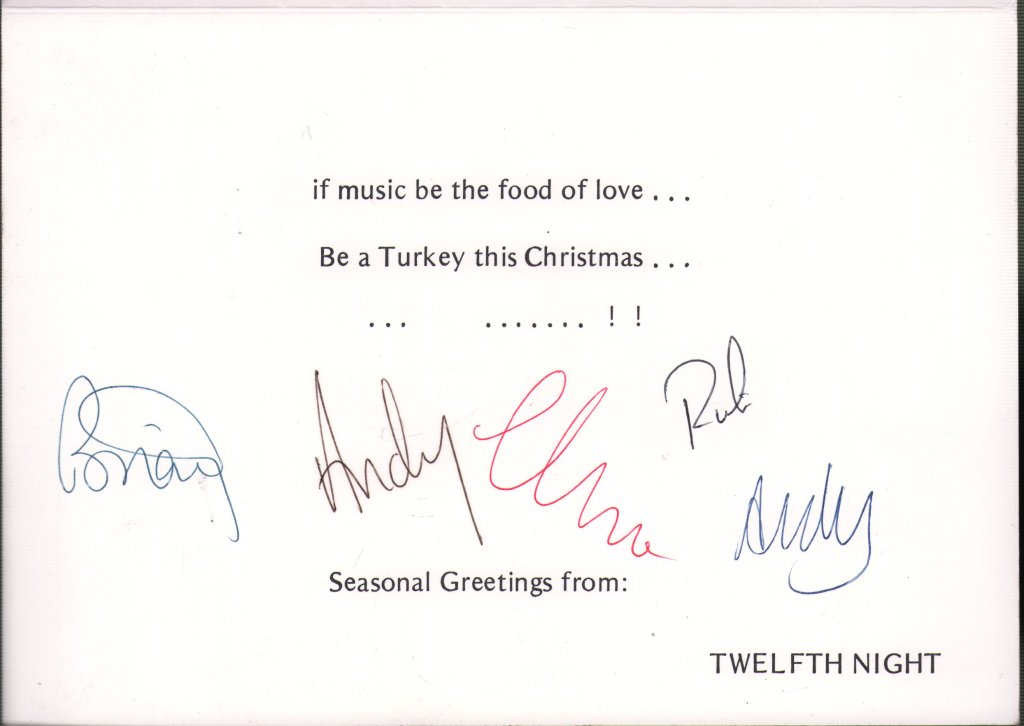 if music be the food of love . . .
Be a Turkey this Christmas . . .
. . .   . . . . . . . ! !
Brian Andy Clive Andy
Seasonal Greetings from:
TWELFTH NIGHT